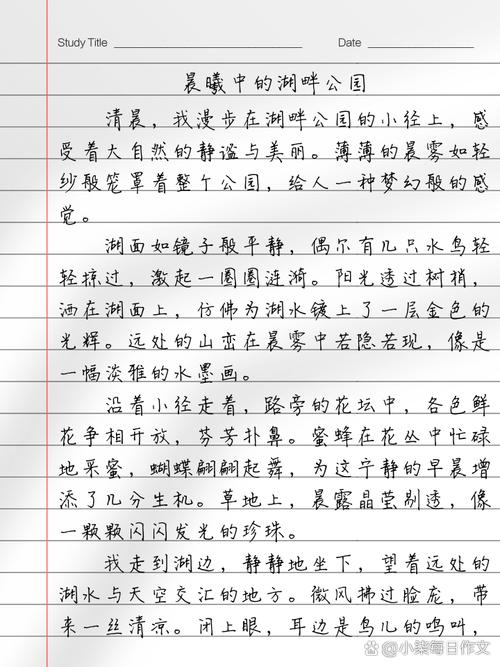 Study Title
Date
晨曦中的湖畔公园
清晨，我漫步在湖畔公园的小径上，感
受着大自然的静谧与美丽。薄薄的晨雾如轻
纱般笼罩着整个公园，给人一种梦幻般的感
觉。
湖面如镜子般平静，偶尔有几只水鸟轻
轻掠过，激起一圈圈涟漪。阳光透过树梢，
洒在湖面上，仿佛为湖水镀上了一层金色的
光辉。远处的山峦在晨雾中若隐若现，像是
一幅淡雅的水墨画。
沿着小径走着，路旁的花坛中，各色鲜
花争相开放，芬芳扑鼻。蜜蜂在花丛中忙碌
地采蜜，蝴蝶翩翩起舞，为这宁静的早晨增
添了几分生机。草地上，晨露晶莹剔透，像
一颗颗闪闪发光的珍珠。
我走到湖边，静静地坐下，望着远处的
湖水与天空交汇的地方。微风拂过脸庞，带
来一丝清凉。闭上眼，耳边是鸟儿的鸣叫，
小柒每日作文